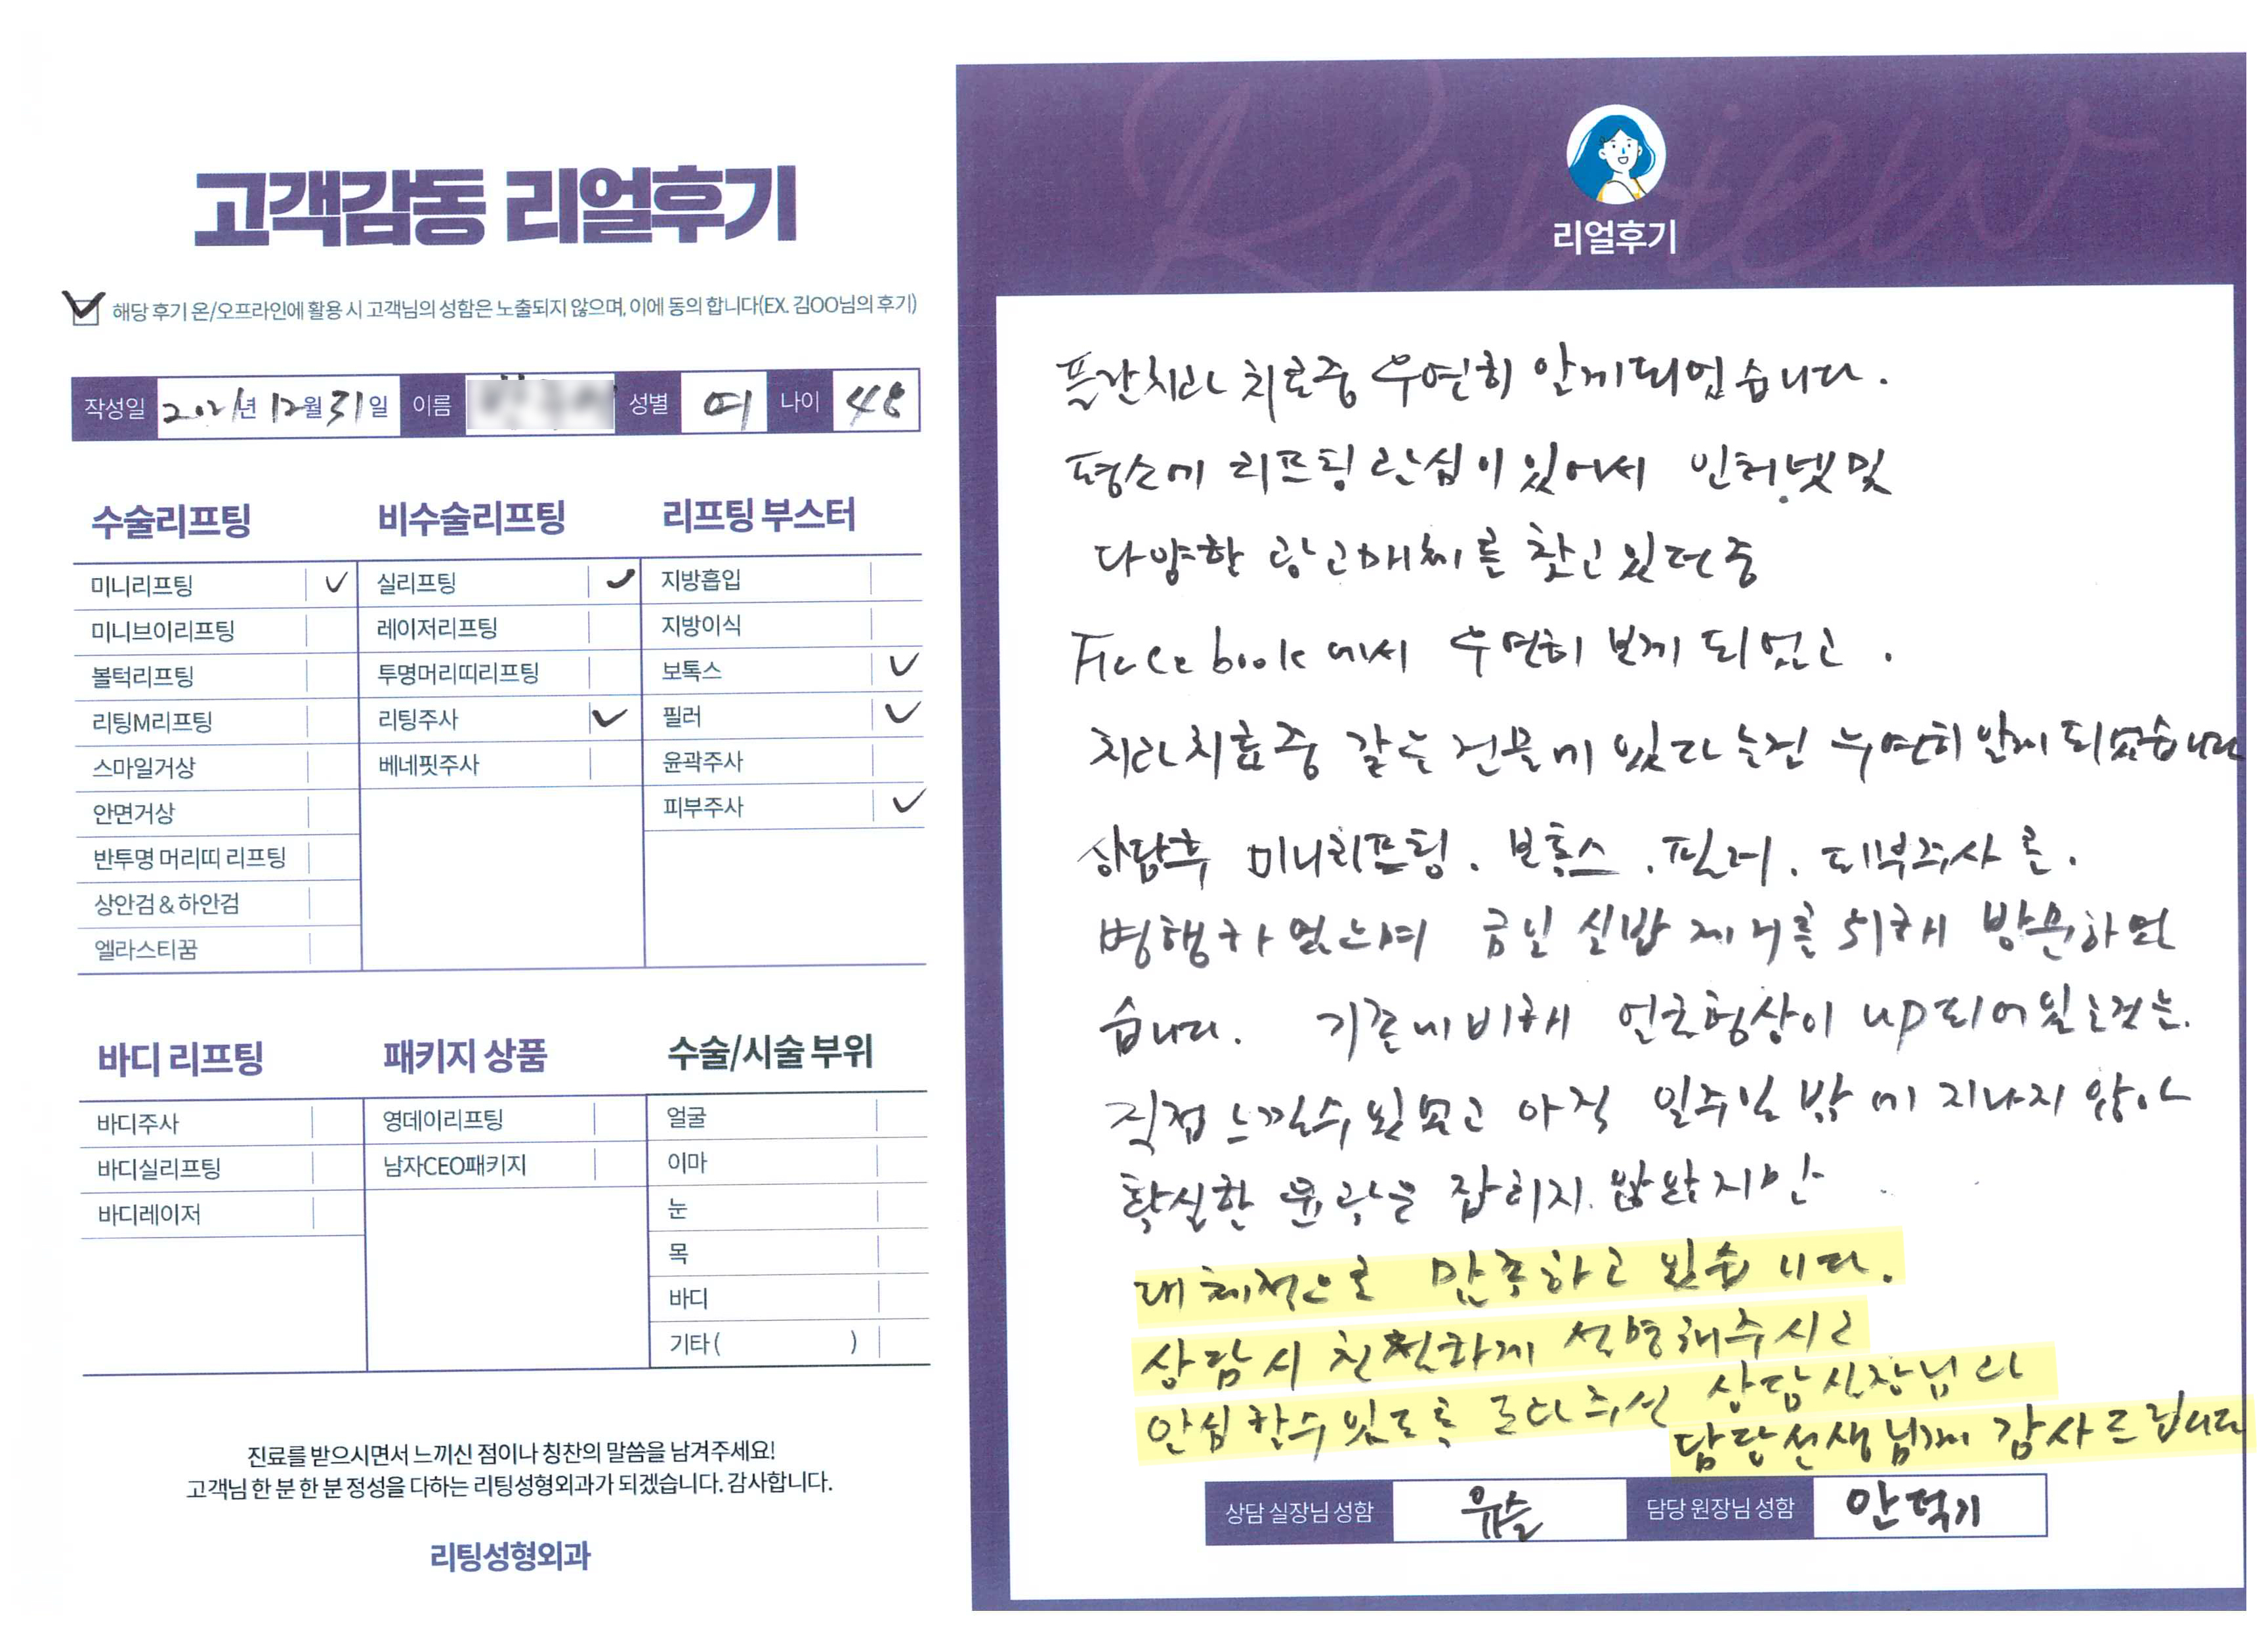 고객감동 리얼후기
해당 후기 온/오프라인에 활용 시 고객님의 성함은 노출되지 않으며, 이에 동의 합니다(EX. 김OO님의 후기)
작성일 2021년 12월 31일 이름 성별 여 나이 48
수술리프팅
미니리프팅 ✓
미니브이리프팅
볼턱리프팅
리팅M리프팅
스마일거상
안면거상
반투명 머리띠 리프팅
상안검 & 하안검
엘라스티꿈
비수술리프팅
실리프팅 ✓
레이저리프팅
투명머리띠리프팅
리팅주사 ✓
베네핏주사
리프팅 부스터
지방흡입
지방이식
보톡스 ✓
필러 ✓
윤곽주사
피부주사 ✓
바디 리프팅
바디주사
바디실리프팅
바디레이저
패키지 상품
영데이리프팅
남자CEO패키지
수술/시술 부위
얼굴
이마
눈
목
바디
기타( )
진료를 받으시면서 느끼신 점이나 칭찬의 말씀을 남겨주세요!
고객님 한 분 한 분 정성을 다하는 리팅성형외과가 되겠습니다. 감사합니다.
리팅성형외과
Review
리얼후기
플란치과 치료중 우연히 알게되었습니다.
평소에 리프팅 관심이 있어서 인터넷 및
다양한 광고매체를 찾고 있던 중
Facebook에서 우연히 보게 되었고.
치과치료중 같은 건물에 있다는걸 우연히 알게 되었습니다
상담후 미니리프팅. 보톡스. 필러. 피부주사를.
병행하였으며 금일 실밥 제거를 위해 방문하였
습니다. 기존에 비해 얼굴형상이 up되어있는것은.
직접 느낄수 있었고 아직 일주일 밖에 지나지 않아
확실한 윤곽은 잡히지 않았지만
대체적으로 만족하고 있습니다.
상담시 친절하게 설명해주시고
안심할수 있도록 도와주신 상담실장님과
담당선생님께 감사드립니다
상담 실장님 성함 유슬 담당 원장님 성함 안덕기